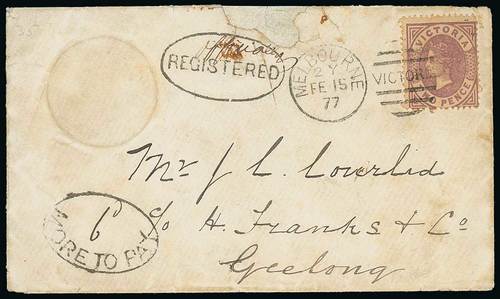 REGISTERED
MELBOURNE
2 Y
FE 15
77
VICTORIA
VICTORIA
TWO PENCE
Mr J. L.
c/o H. Franks & Co
Geelong
6d
MORE TO PAY